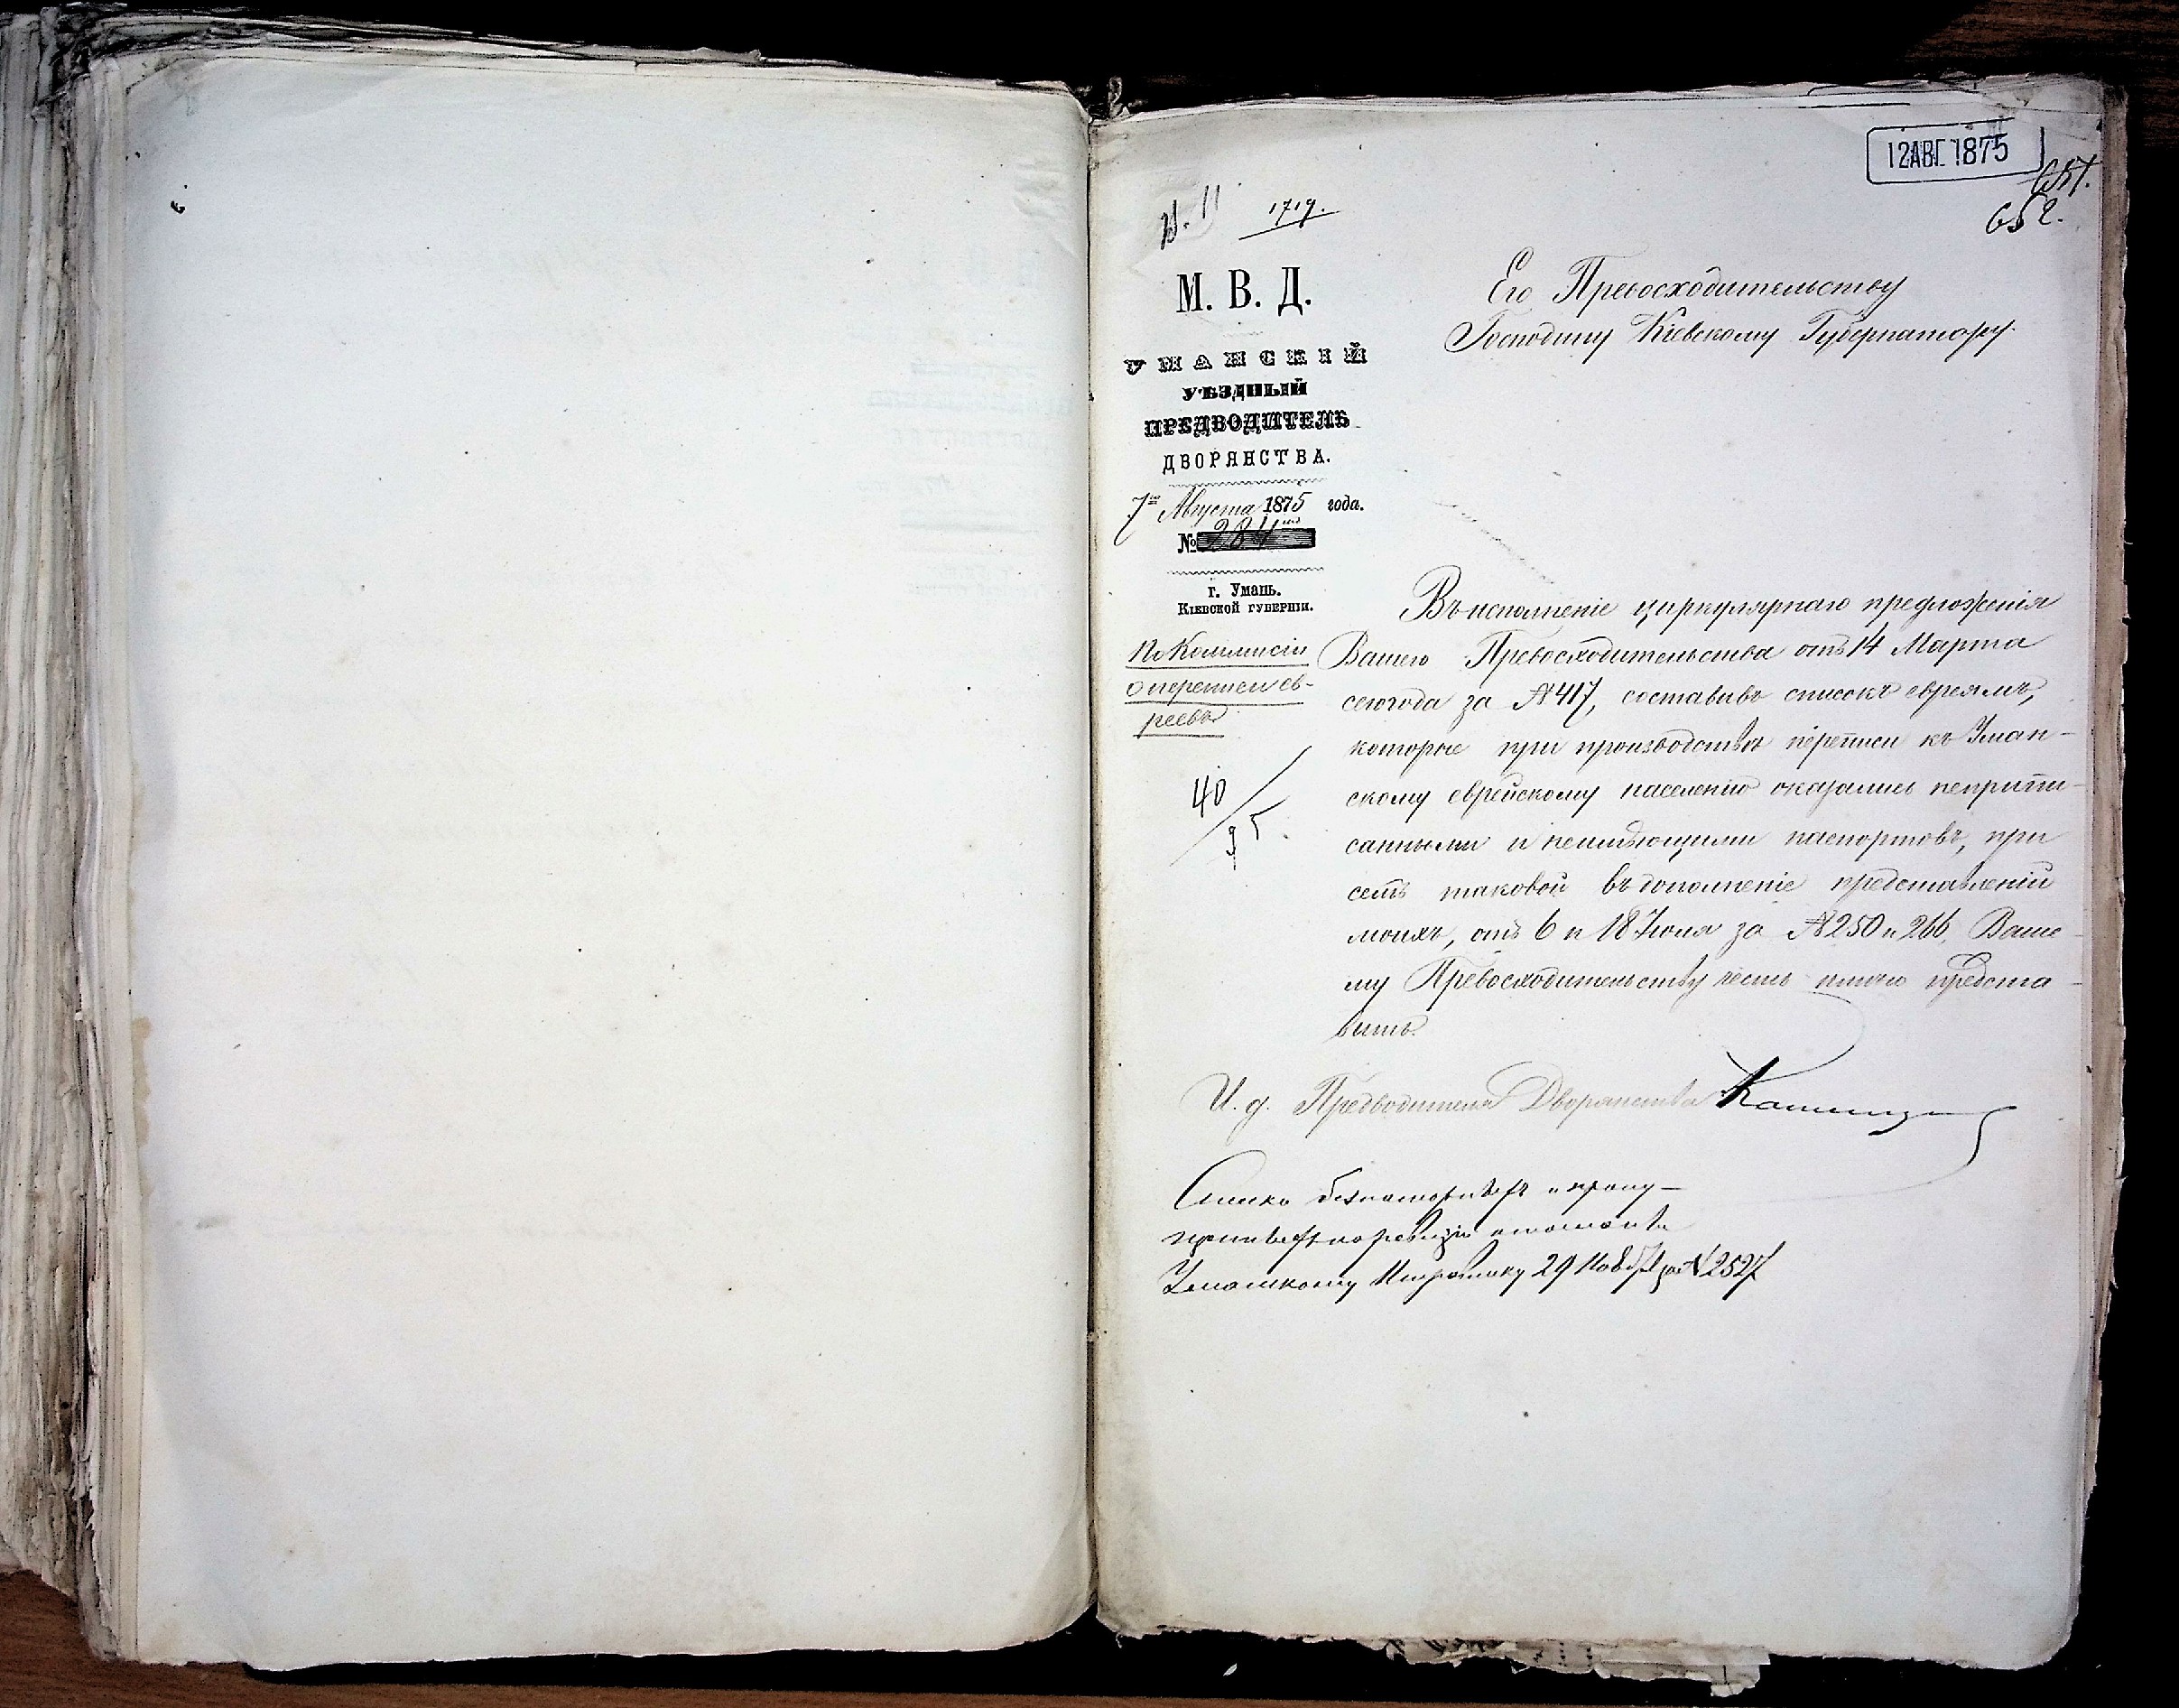 12 АВГ 1875
651.
652.
1719.
М. В. Д.
УМАНСКІЙ
УѢЗДНЫЙ
ПРЕДВОДИТЕЛЬ
ДВОРЯНСТВА.
7го Августа 1875 года.
№ 284
г. Умань.
Кіевской губерніи.
По Коммисіи
о переписи ев-
реевъ
40
95
Его Превосходительству
Господину Кіевскому Губернатору.
Въ исполненіе циркулярнаго предложенія
Вашего Превосходительства отъ 14 Марта
сего года за №417, составивъ списокъ евреямъ,
которые при производствѣ переписи къ Уман-
скому еврейскому населенію оказались неприпи-
санными и неимѣющими паспортовъ, при
семъ таковой въ дополненіе представленій
моихъ, отъ 6 и 18 Іюня за №250 и 266, Ваше-
му Превосходительству честь имѣю предста-
вить.
И. д. Предводителя Дворянства
Уманскому Исправнику 29 Нояб за №2527